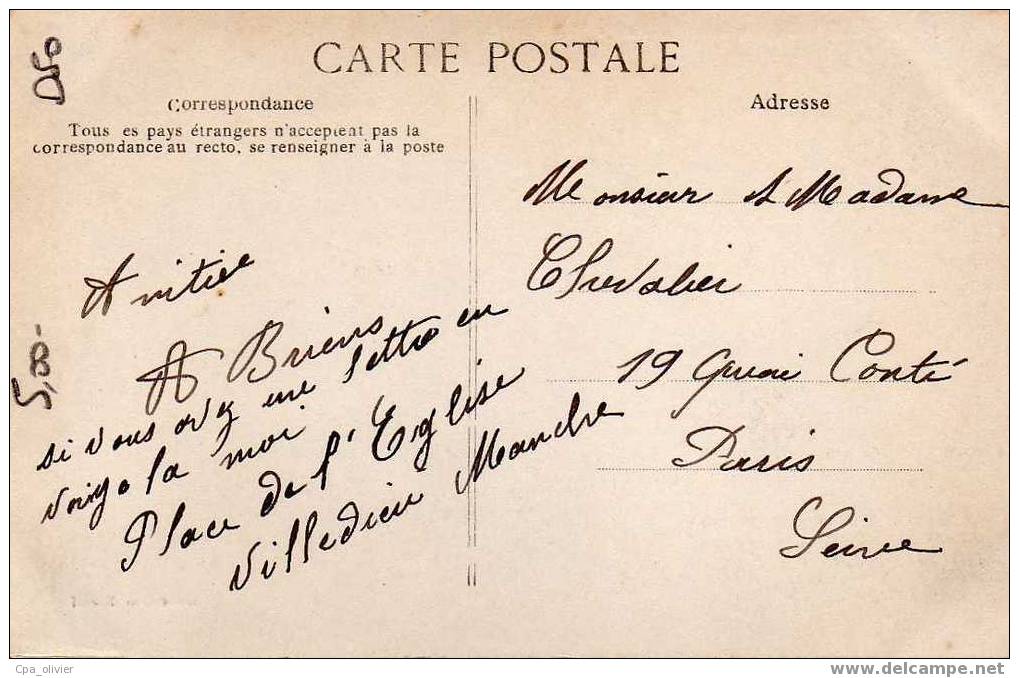 CARTE POSTALE
Correspondance
Tous es pays étrangers n'acceptent pas la
correspondance au recto, se renseigner à la poste
Adresse
Amitiée
A Briens
si vous avez une lettre en
la moi
Place de l'Eglise
Villedieu Manche
Monsieur & Madame
Chevalier
19 Quai Conti
Paris
Seine
5,80-
Cpa_olivier
www.delcampe.net